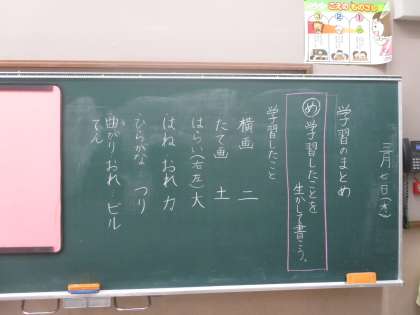 三月七日(木)
学習のまとめ
め 学習したことを
生かして書こう。
学習したこと
横画 二
たて画 土
はらい(右左)大
はね おれ 力
ひらがな つり
曲がり おれ ビル
てん
こえのものさし
3
2
1